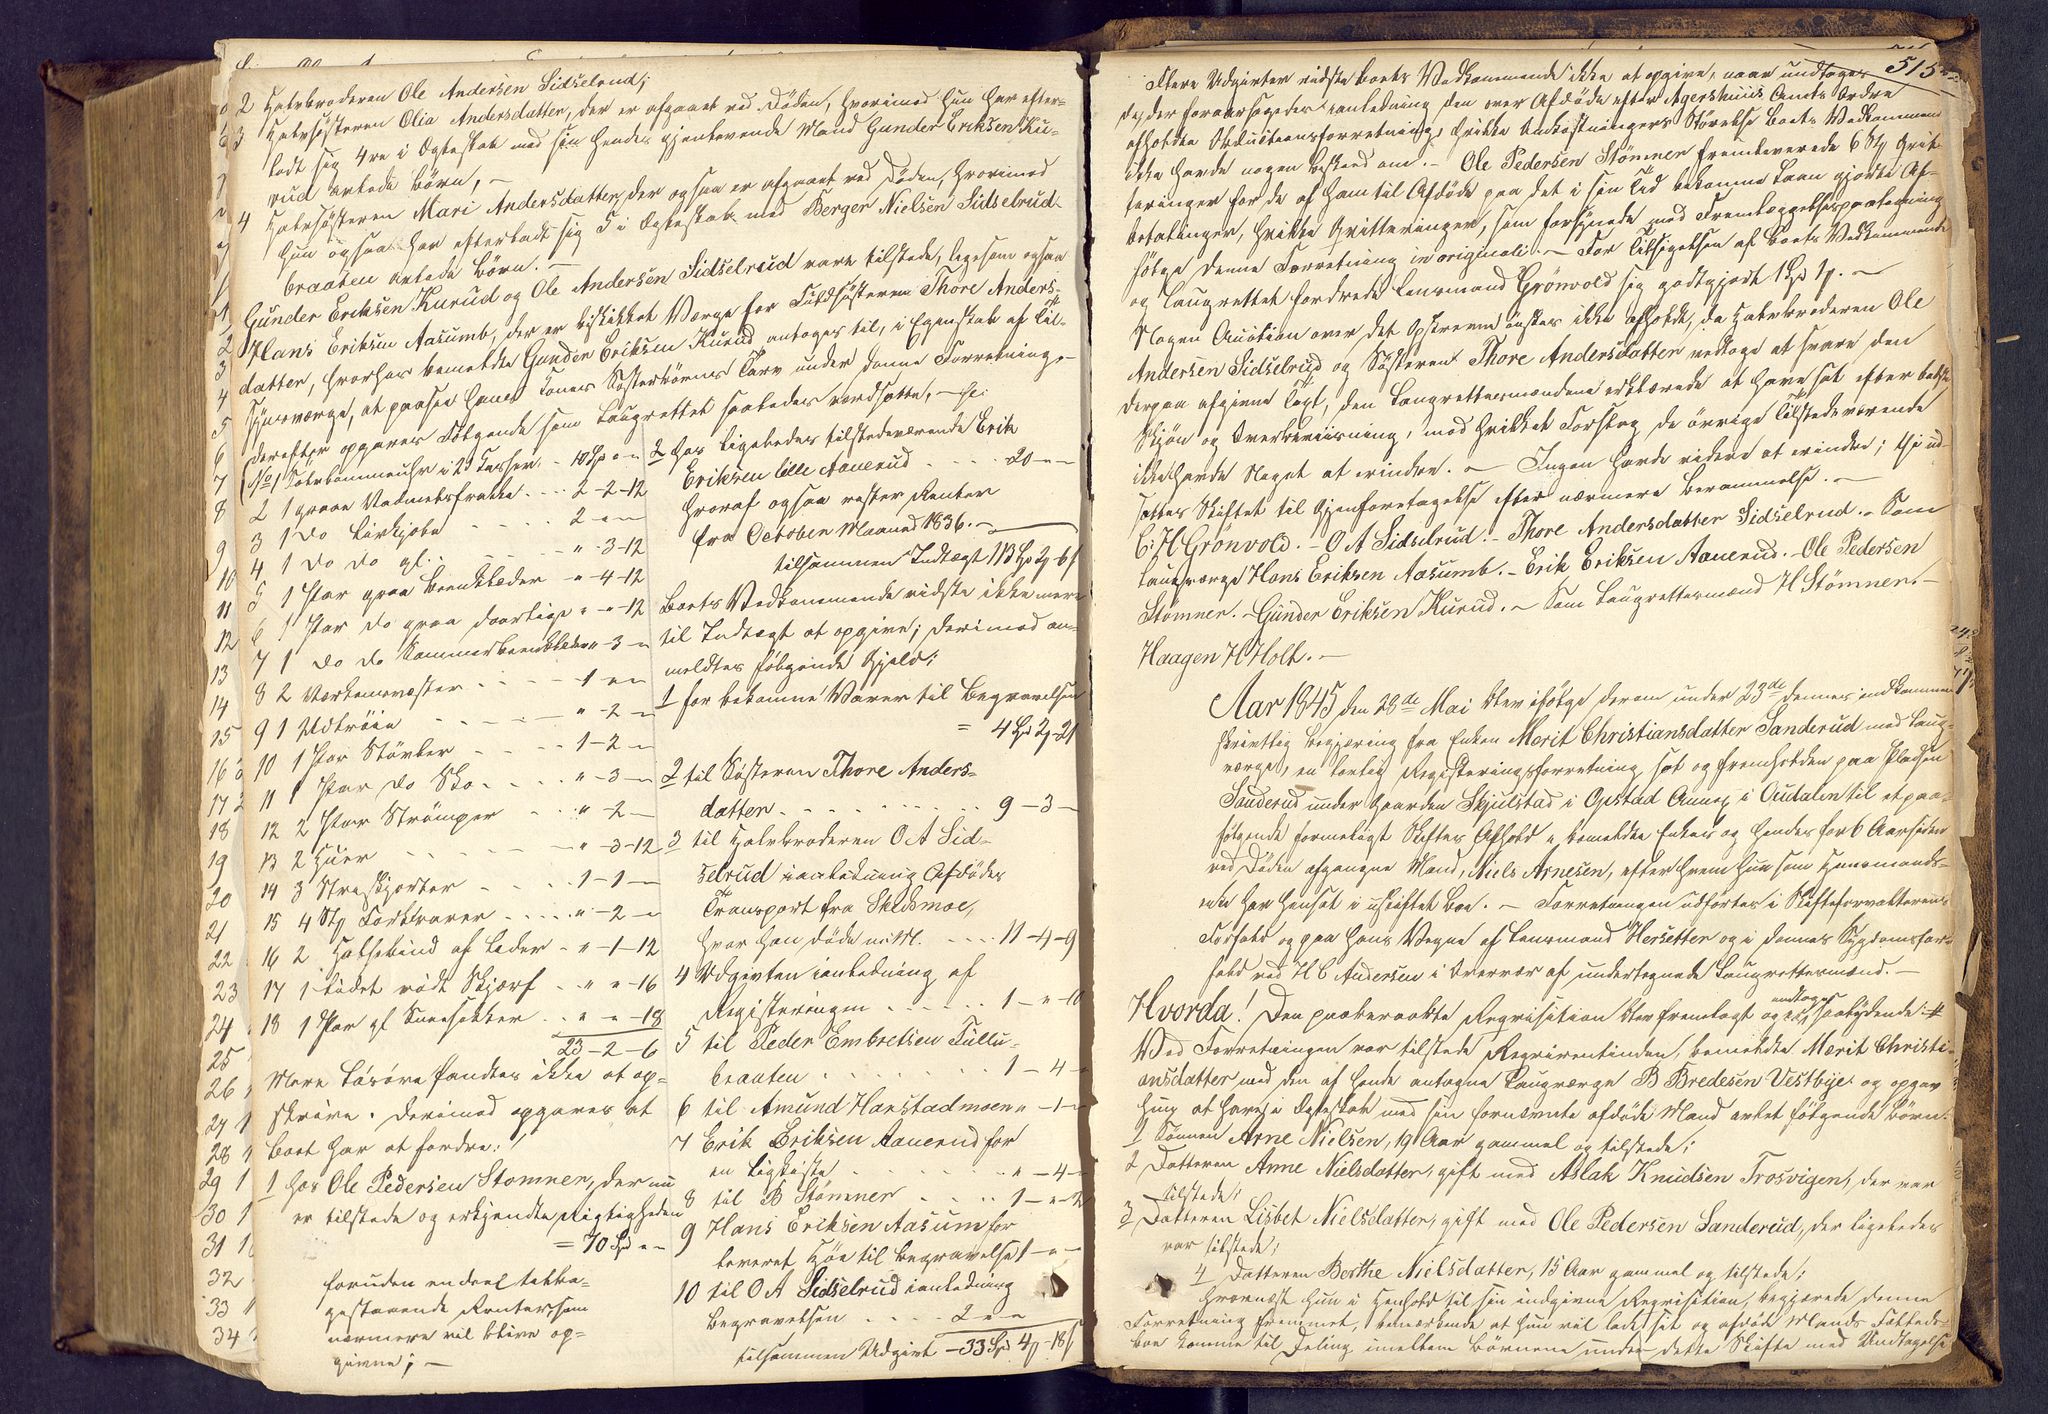 2 Halvbroderen Ole Andersen Sidselrud;
3 Halvsösteren Olia Andersdatter, der er afgaaet ved Döden, hvorimod hun har efter-
ladt sig 4re i Ægteskab med sin hendes gjenlevende Mand Gunder Eriksen Ku-
rud avlede Börn, —
4 Halvsösteren Mari Andersdatter, der ogsaa er afgaaet ved Döden, hvorimod
hun ogsaa har efterladt sig 5 i Ægteskab med Berger Nielsen Sidselrud-
braaten avlede Börn. —
Gunder Eriksen Kurud og Ole Andersen Sidselrud vare tilstede, ligesom ogsaa
Hans Eriksen Aasumb, der er beskikket Værge for Fuldsösteren Thore Anders-
datter, hvorhos bemeldte Gunder Eriksen Kurud antoges til, i Egenskab af Til-
synsværge, at paasee hans Sösterbörns Tarv under denne Forretning. —
derefter opgaves Fölgende som Laugrettet saaledes værdsatte, —
No 1 Sölvlommeuhr i 2 Kasher - 10 Spd " -
2 1 graae Vadmelsfrakke - - - 2-2-12
3 1 Do Livkjole - - - 2 - " -
4 1 Do Do gl. - - - " - 3-12
5 1 Par graa Beenklæder - " - 4-12
6 1 Par Do graa daarlige " - " -12
7 1 Do Do Sommerbeenklæder " - 3 -
8 2 Værkensveste - - - 1 - " -
9 1 Uldtröie - - - " - 2 -
10 1 Par Stövler - - - 1 - 2 -
11 1 Par Do Sko - - - " - 3 -
12 2 Par Strömper - - " - 2 -
13 2 Huer - - - " - 3-12
14 3 Strieskjorter - - - 1 - 1 -
15 4 Stk Forklæder - - - " - 2 -
16 2 Halsebind af Læder - " - 1 - 12
17 1 Uldet rödt Skjærf - - " - " - 16
18 1 Par gl Sneesokker - - " - " - 18
23 - 2 - 6
Mere Lösöre fandtes ikke at op-
skrive. Derimod opgaves at
Boet har at fordre:
1 hos Ole Pedersen Stömner, der nu
er tilstede og erkjendte Rigtigheden
= 70 Spd " -
foruden endeel tilba-
gestaaende Renter, som
nærmere vil blive op-
givne; —
2 hos ligeledes tilstedeværende Erik
Eriksen lille Aanerud - - - 20 - " -
hvoraf ogsaa rester Renter
fra October Maaned 1836. —
tilsammen Indtægt 113 Spd 2 - 6 s
Boets Vedkommende vidste ikke mere
til Indtægt at opgive; derimod an-
meldtes fölgende Gjeld:
1 for bekomne Varer til Begravelsen
= 4 Spd 2 - 21
2 til Sösteren Thore Anders-
datter - - - 9 - 3 -
3 til Halvbroderen O A Sid-
selrud i anledning Afdödes
Transport fra Skedsmoe,
hvor han döde - - - 11 - 4 - 9
4 Udgivten i anledning af
Registeringen - - - 1 - " - 10
5 til Peder Embretsen Tullu-
braaten - - - 1 - 4 -
6 til Amund Harstadmoen " - 1 -
7 Erik Eriksen Aanerud for
en Ligkiste - - - " - 4 -
8 til B Stömner - - - 1 - " - 2
9 Hans Eriksen Aasum for
leveret Höe til Begravelse 1 - " -
10 til O A Sidselrud i anledning
Begravelsen - - - 2 - " -
tilsammen Udgivt - 33 Spd 4 - 18 s
515
Flere Udgivter vidste Boets Vedkommende ikke at opgive, naar undtages
de, der foraarsagedes i anledning den over Afdöde efter Agershuus Amts Ordre
afholdte Obductionsforretning, hvilke Omkostningers Störelse Boets Vedkommende
ikke havde nogen Beskeed om. — Ole Pedersen Stömner fremleverede 6 Stk Qvit-
teringer for de af ham til Afdöde paa det i sin Tid bekomne Laan gjorte Af-
betalinger, hvilke Qvitteringer, som forsynede med Fremlæggelsespaategning
fölge denne Forretning in originali. — For Tilsigelsen af Boets Vedkommende
og Laugrettet fordrede Lensmand Grönvold sig godtgjort 1 Spd 1 —
Nogen Auction over det Opskrevne önskes ikke afholdt, da Halvbroderen Ole
Andersen Sidselrud og Sösteren Thore Andersdatter vedtoge at svare den
derpaa afgivne Taxt, den Laugrettesmændene erklærede at have sat efter bedste
Skjön og Overbeviisning, mod hvilket Forslag de övrige Tilstedeværende
ikke havde Noget at erindre. — Ingen havde videre at erindre; thi ud-
sattes Skiftet til Gjenforetagelse efter nærmere Berammelse. —
C: H Grönvold. — O A Sidselrud. — Thore Andersdatter Sidselrud. Som
Laugværge Hans Eriksen Aasumb. — Erik Eriksen Aanerud. — Ole Pedersen
Stömner. — Gunder Eriksen Kurud. — Som Laugrettesmænd H Stömner. —
Haagen H Holt. —
Aar 1845 den 28de Mai blev ifölge derom under 23de dennes indkommen
skrivtlig Begjæring fra Enken Merit Christiansdatter Sanderud med Laug-
værge, en lovlig Registeringsforretning sat og fremholden paa Pladsen
Sanderud under Gaarden Skjulstad i Opstad Annex i Oudalen til et paa-
fölgende formeligt Skiftes Afhold i bemeldte Enkes og hendes for 6 Aar siden
ved Döden afgangne Mand, Niels Arnesen, efter hvem hun som Huusmands-
enke har hensat i uskiftet Boe. — Forretningen udförtes i Skifteforvalterens
Forfald og paa hans Vegne af Lensmand Hersetter og i dennes Sygdomsfor-
fald ved H C Andersen i Overvær af undertegnede Laugrettesmænd. —
Hvorda! Den paaberaabte Reqvisition blev fremlagt og saalydende: #
Ved Forretningen var tilstede Reqvirentinden, bemeldte Merit Christi-
ansdatter med den af hende antagne Laugværge B Bredesen Vestbye og opgav
hun at have i Ægteskab med sin fornævnte afdöde Mand avlet fölgende Börn:
1 Sönnen Arne Nielsen, 19 Aar gammel og tilstede;
2 Datteren Anne Nielsdatter, gift med Aslak Knudsen Trosvigen, der var
tilstede;
3 Datteren Lisbet Nielsdatter, gift med Ole Pedersen Sanderud, der ligeledes
var tilstede;
4 Datteren Berthe Nielsdatter, 15 Aar gammel og tilstede;
hvornæst hun i Henhold til sin indgivne Reqvisition, begjærede denne
Forretning fremmet, bemærkende at hun vil lade sit og afdöde Mands Fælleds-
boe komme til Deling imellem Börnene under dette Skifte med Undtagelse